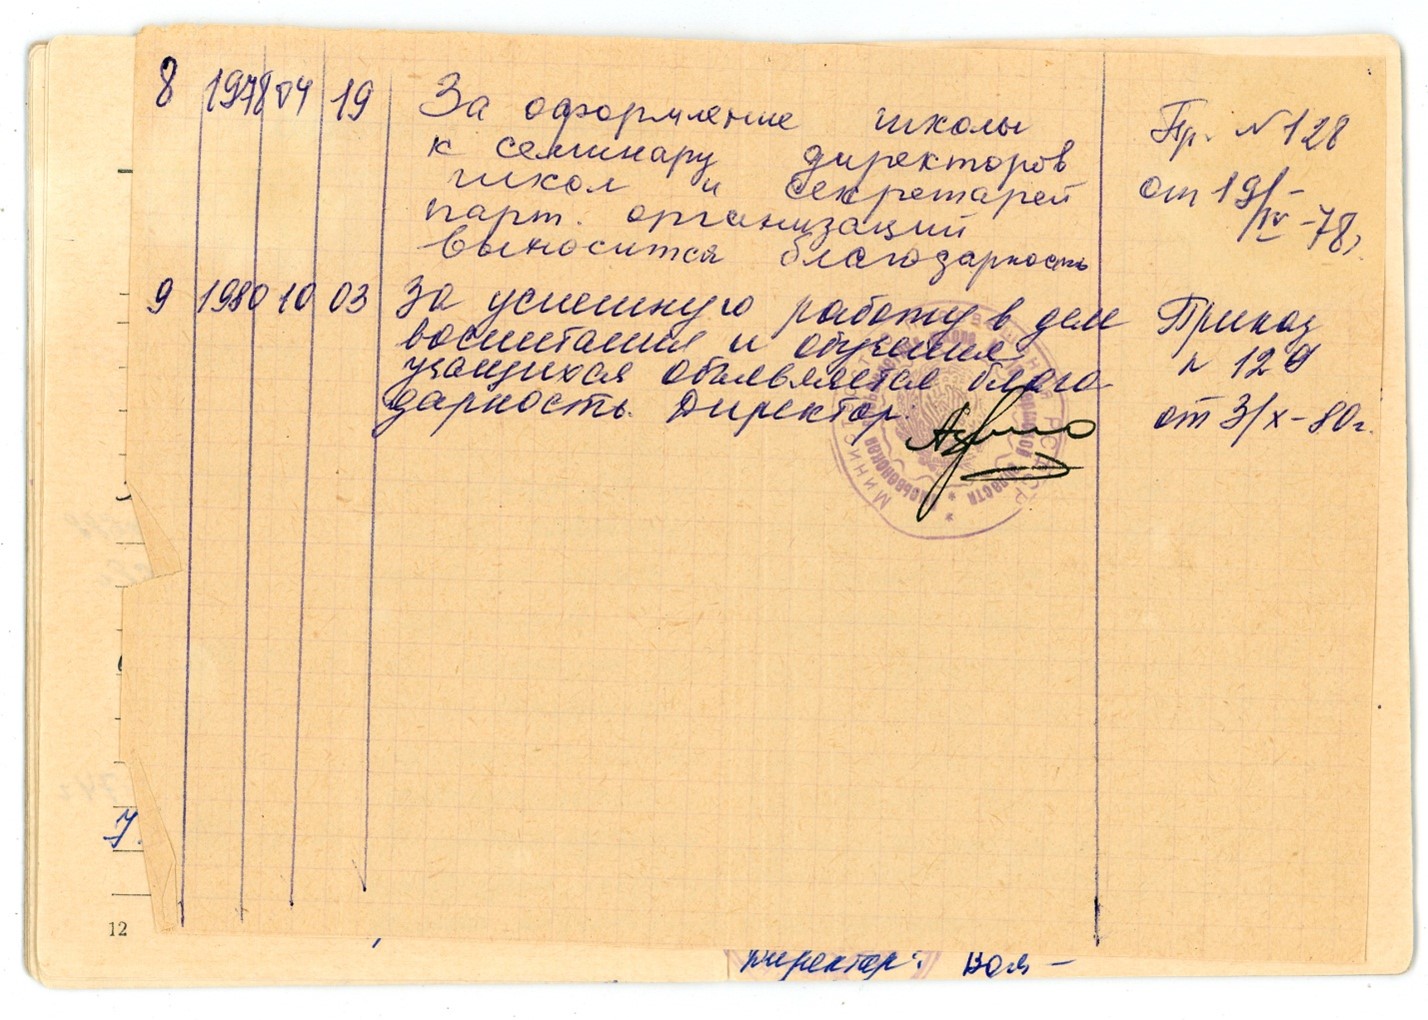 8 1978 04 19 За оформление школы Пр. № 128
к семинару директоров
школ и секретарей от 19/IV-78г.
парт. организаций
выносится благодарность
9 1980 10 03 За успешную работу в деле Приказ
воспитания и обучения № 129
учащихся объявляется благо-
дарность. Директор: от 3/X-80г.
7.
12
Директор: